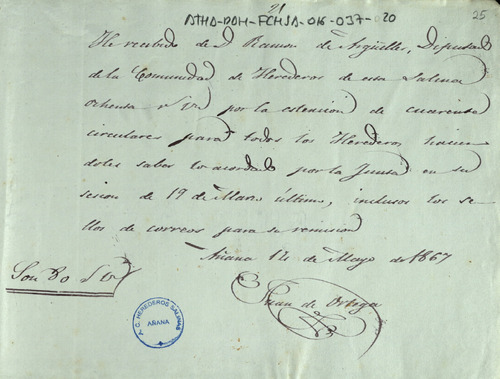 21
ATHA-DAH-FCHSA-016-037-020
25
He recibido de D. Ramon de Argüelles, Diputado
de la Comunidad de Herederos de esta Salina
Ochenta r.s v.n por la estencion de cuarenta
circulares para todos los Herederos, hacien
doles saber lo acordado por la Junta en su
sesion de 19 de Marzo último, inclusos los se
llos de correos para su remision
Añana 14 de Mayo de 1867
Son 80 r.s v.n
Juan de Ortega
C. HEREDEROS SALINAS
AÑANA